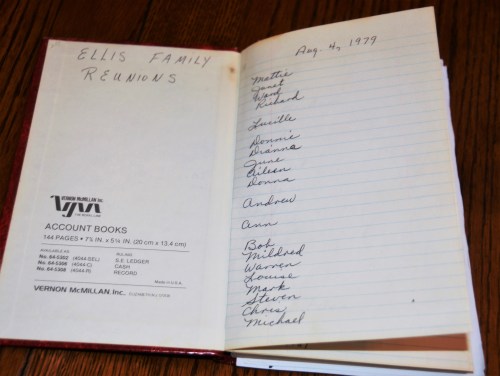 ELLIS FAMILY
REUNIONS
VERNON McMILLAN INC.
VM
ACCOUNT BOOKS
144 PAGES • 7⅞ IN. x 5¼ IN. (20 cm x 13.4 cm)
AVAILABLE AS: RULING
No. 64-5362 (4044-SEL) S.E. LEDGER
CASH
RECORD
Made in U.S.A.
VERNON McMILLAN, Inc.
Aug. 4, 1979
Mattie
Janet
Ward
Richard
Lucille
Donnie
Dianne
June
Eileen
Donna
Andrew
Ann
Bob
Mildred
Warren
Louise
Mark
Steven
Chris
Michael